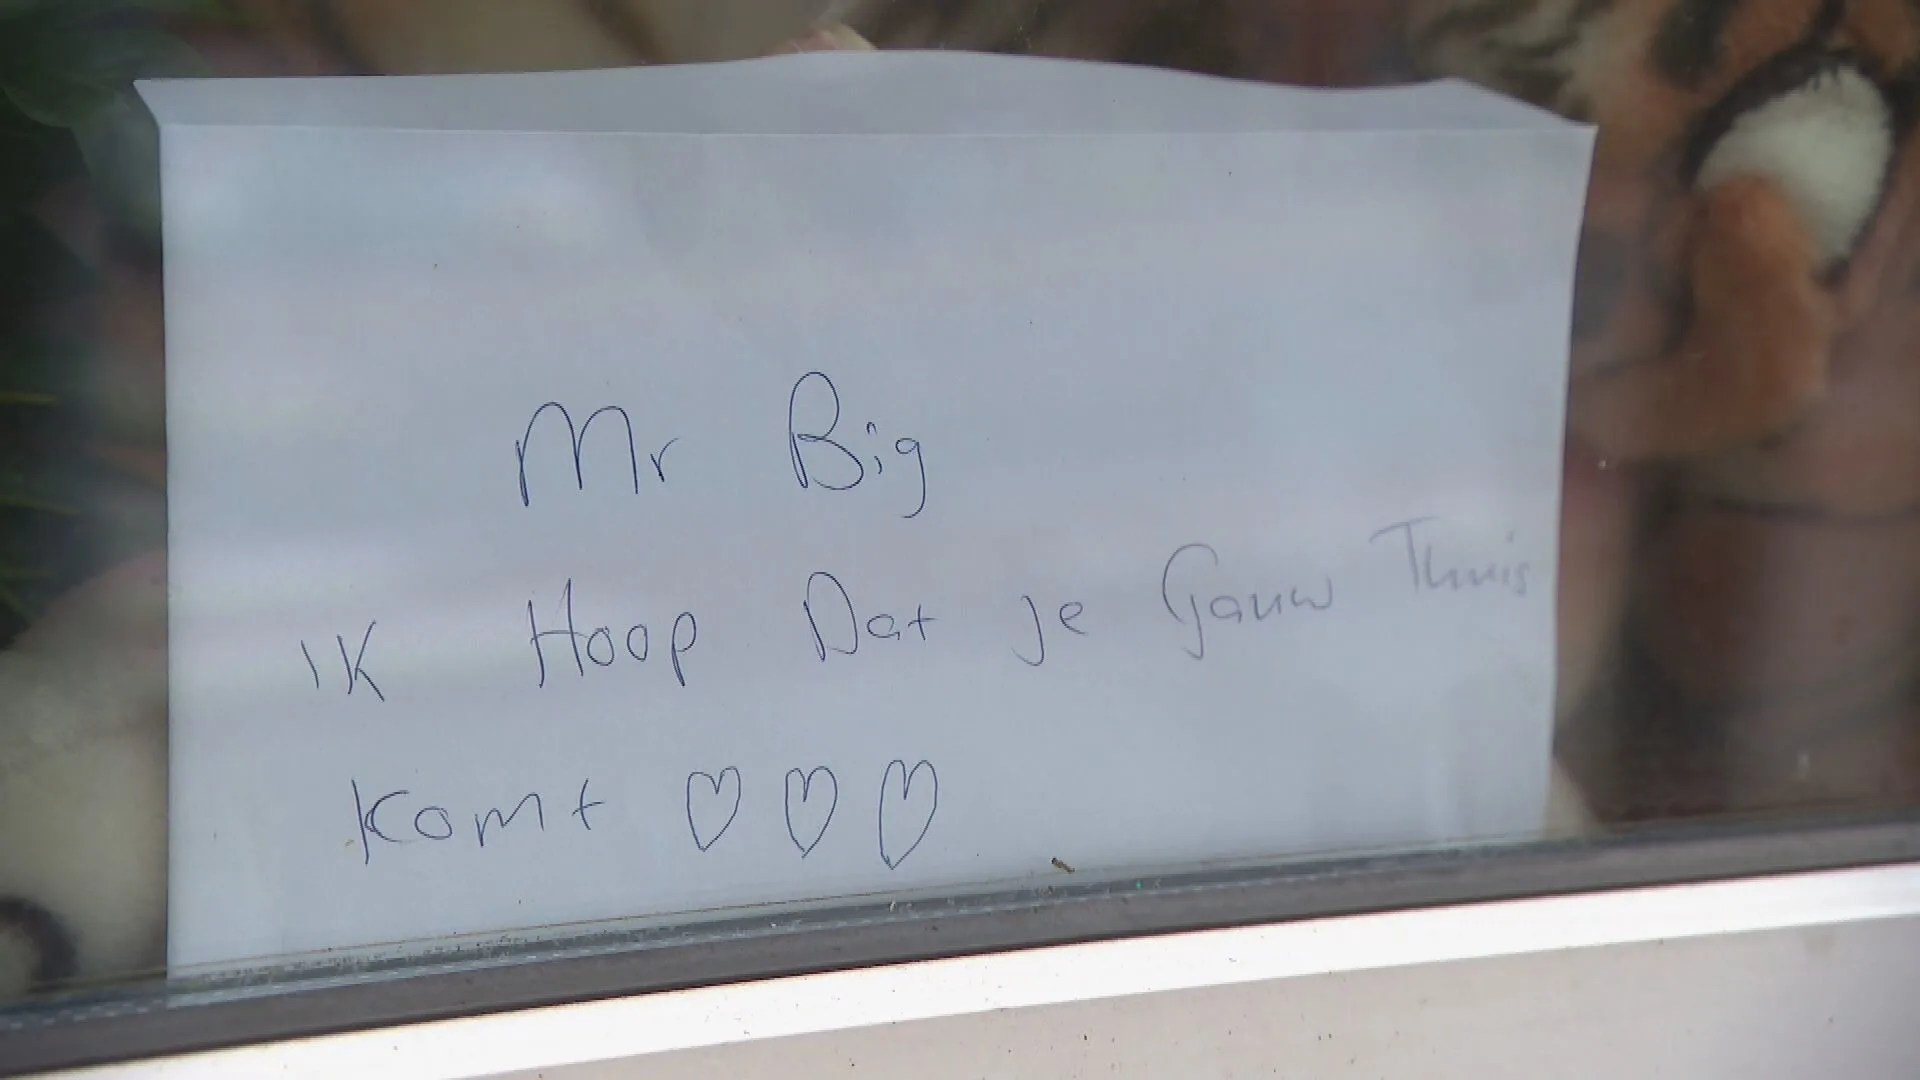 Mr Big
IK Hoop Dat je Gauw Thuis
Komt ♡♡♡